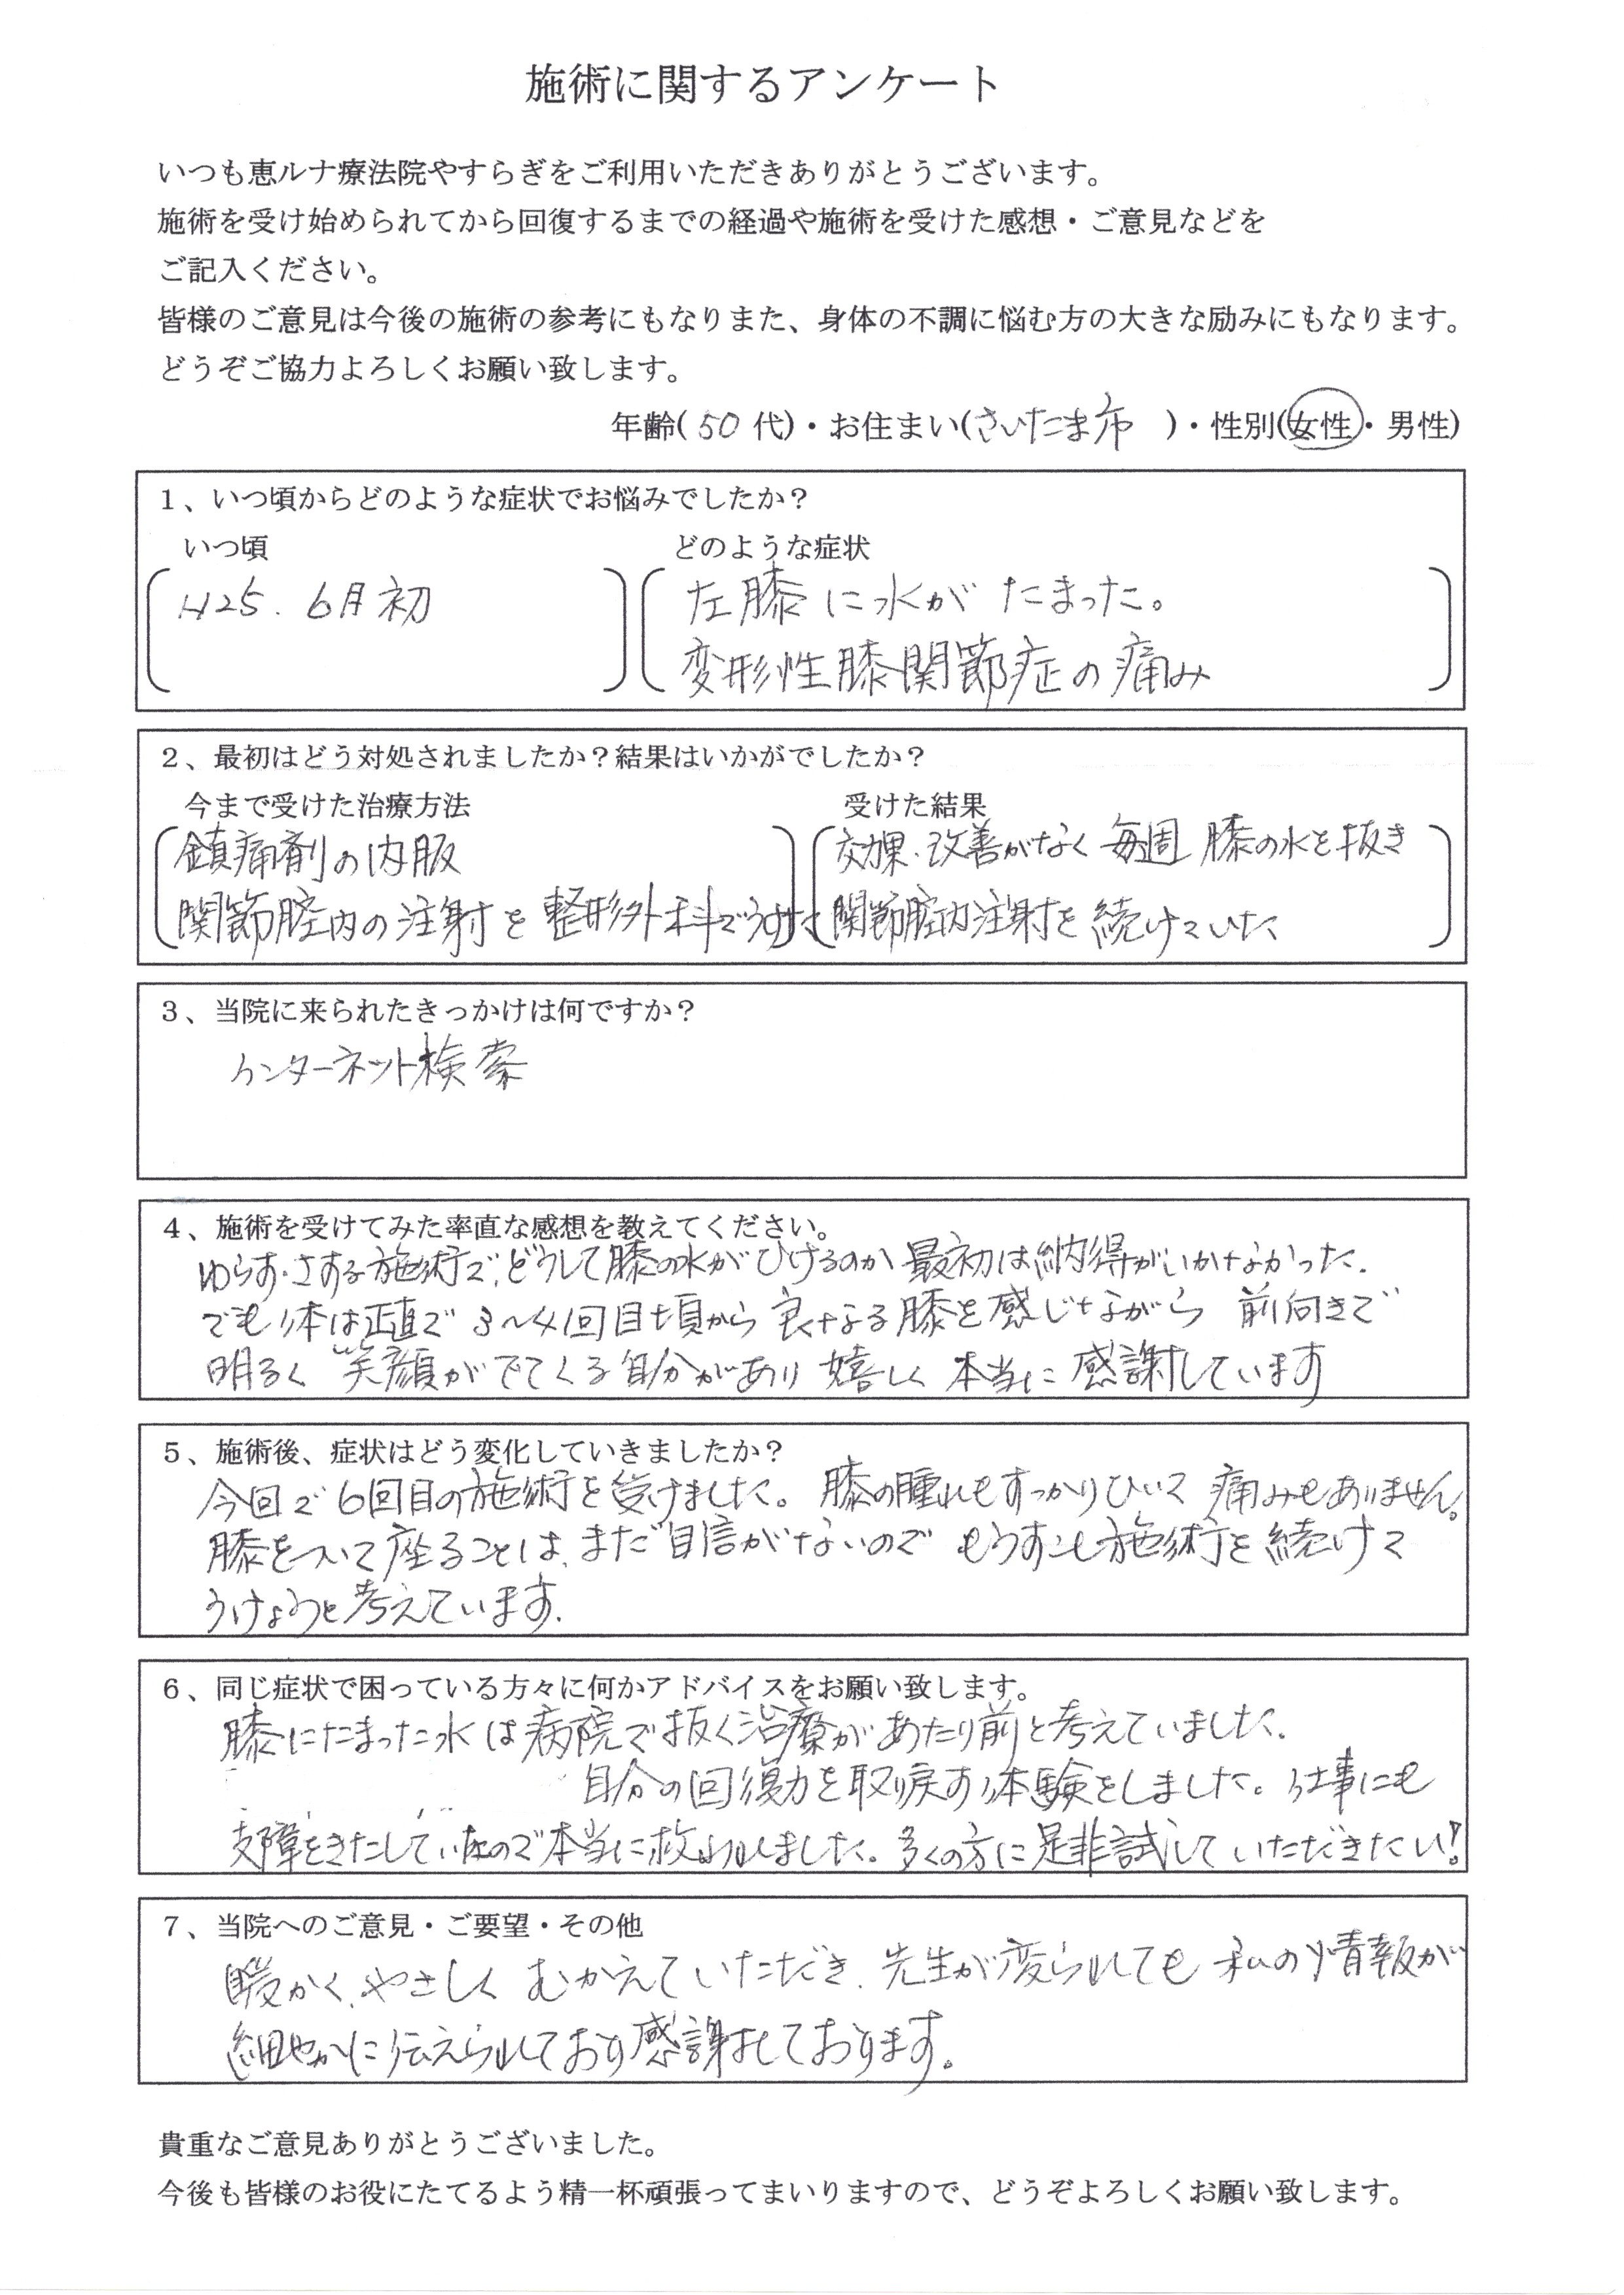 施術に関するアンケート
いつも恵ルナ療法院やすらぎをご利用いただきありがとうございます。
施術を受け始められてから回復するまでの経過や施術を受けた感想・ご意見などを
ご記入ください。
皆様のご意見は今後の施術の参考にもなりまた、身体の不調に悩む方の大きな励みにもなります。
どうぞご協力よろしくお願い致します。
年齢(50代)・お住まい(さいたま市 )・性別(女性・男性)
1、いつ頃からどのような症状でお悩みでしたか？
いつ頃 どのような症状
H25. 6月初 左膝に水がたまった。
変形性膝関節症の痛み
2、最初はどう対処されましたか？結果はいかがでしたか？
今まで受けた治療方法 受けた結果
鎮痛剤の内服 効果・改善がなく毎週膝の水を抜き
関節腔内の注射を整形外科でうけて 関節腔内注射を続けていた
3、当院に来られたきっかけは何ですか？
インターネット検索
4、施術を受けてみた率直な感想を教えてください。
ゆらす・さする施術で、どうして膝の水がひけるのか最初は納得がいかなかった。
でも体は正直で3〜4回目頃から良くなる膝を感じながら前向きで
明るく笑顔がでてくる自分があり嬉しく本当に感謝しています
5、施術後、症状はどう変化していきましたか？
今回で6回目の施術を受けました。膝の腫れもすっかりひいて痛みもありません。
膝をついて座ることは、まだ自信がないのでもうすこし施術を続けて
うけようと考えています。
6、同じ症状で困っている方々に何かアドバイスをお願い致します。
膝にたまった水は病院で抜く治療があたり前と考えていました。
自分の回復力を取り戻す体験をしました。仕事にも
支障をきたしていたので本当に救われました。多くの方に是非試していただきたい！
7、当院へのご意見・ご要望・その他
暖かく、やさしくむかえていただき、先生が変られても私の情報が
細やかに伝えられており感謝しております。
貴重なご意見ありがとうございました。
今後も皆様のお役にたてるよう精一杯頑張ってまいりますので、どうぞよろしくお願い致します。